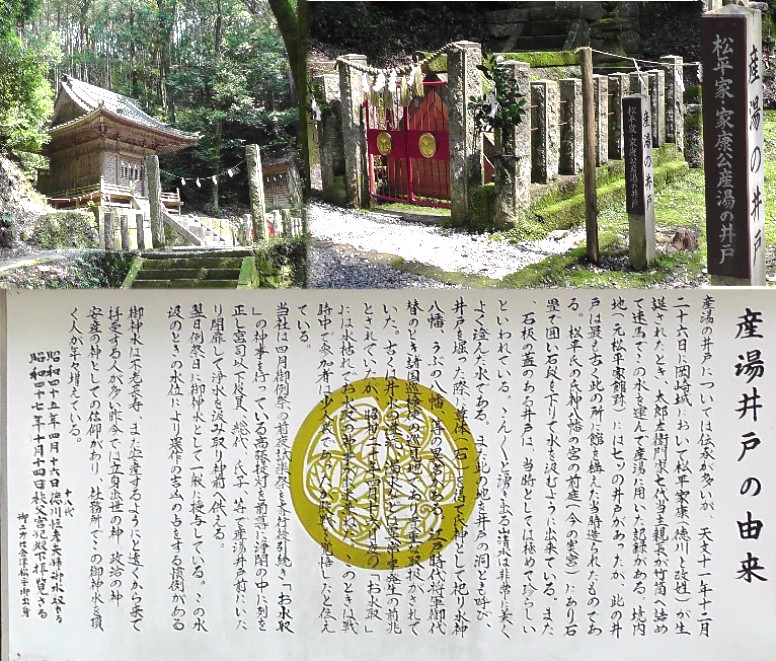 産湯の井戸
松平家・家康公産湯の井戸
産湯の井戸
松平家・家康公産湯の井戸
産湯井戸の由来
産湯の井戸については伝承が多いが、天文十一年十二月
二十六日に岡崎城において松平家康（徳川と改姓）が生
誕されたとき、太郎左衛門家七代当主親長が竹筒へ詰め
て速馬でこの水を運んで産湯に用いた記録がある。境内
地（元松平家館跡）には七ッの井戸があったが、此の井
戸は最も古く此の所に館を構えた当時造られたものであ
る。松平氏の氏神八幡の宮の前庭（今の奥宮）にあり石
畳で囲い石段を下りて水を汲むように出来ている。また
、石板の蓋のある井戸は、当時としては極めて珍らしい
といわれている。こんこんと湧き出る清水は非常に美く
よく澄んだ水である。また此の地を井戸の洞とも呼び
井戸を掘った際に （石）を得て氏神として祀り水神
八幡、うぶの八幡、等の異名がある。江戸時代将軍御代
替のとき諸国巡検使の巡見地であり重要な取扱がされて
いた。古くは井水の 濁水 は異常発生の前兆
とされていたが、昭和二十年四月十六日夜の「お水取」
には水枯れでお水取の 、このときは戦
時中で参加者は少人数であった 敗戦を覚悟したと伝え
ている。
当社は四月御例祭の前夜試楽祭を斉行後引続き「お水取
」の神事を行っている高張提灯を前導に浄闇の中に列を
正し宮司以下役員、総代、氏子、等で産湯井戸前にいた
り開扉して浄水を汲み取り神前へ供える。
翌日例祭日に御神水として一般に授与している。この水
汲のときの水位により農作の吉凶の占をする慣例がある
御神水は不老長寿、また安産するようにと遠くから来て
拝受する人が多い昨今では立身出世の神、政治の神
安産の神としての信仰があり、社務所でこの御神水を頂
く人が年々増えている。
昭和四十五年四月十六日徳川恒孝夫婦御水取する
十八代
昭和四十七年十月十四日秩父宮妃殿下拝覧さる
御二方は会津松平御出身